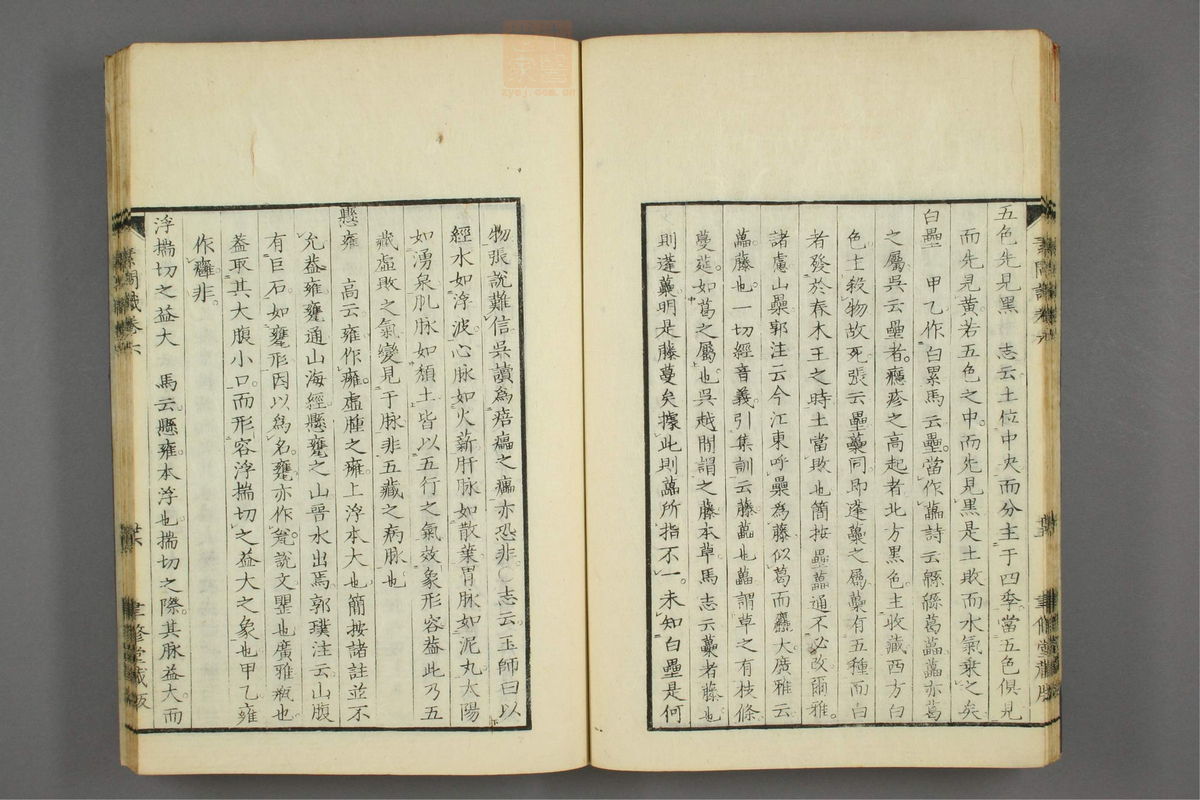 五色先見黑 志云土位中央而分主于四季當五色俱見
而先見黃若五色之中而先見黑是土敗而水氣乗之矣
白壘 甲乙作白累馬云壘當作藟詩云緜緜葛藟藟亦葛
之屬吳云壘者癮疹之高起者北方黑色主收藏西方白
色主殺物故死張云壘虆同即蓬虆之屬虆有五種而白
者發於春木王之時土當敗也簡按壘藟通不必改爾雅
諸慮山櫐郭注云今江東呼櫐為藤似葛而麤大廣雅云
藟藤也一切經音義引集訓云藤藟也藟謂草之有枝條
蔓莚如葛之屬也吳越間謂之藤本草馬志云虆者藤也
則蓬虆明是藤蔓矣據此則藟所指不一未知白壘是何
物張說難信吳讀為痞㿔之㿔亦恐非○志云玉師曰以
經水如浮波心脉如火薪肝脉如散葉胃脉如泥丸太陽
如湧泉肌脉如頹土皆以五行之氣效象形容葢此乃五
藏虛敗之氣變見于脉非五藏之病脉也
懸雍 高云雍作癰虛腫之癰上浮本大也簡按諸註並不
允葢雍甕通山海經懸甕之山晉水出焉郭璞注云山腹
有巨石如甕形因以為名甕亦作瓮說文罌也廣雅瓶也
葢取其大腹小口而形容浮揣切之益大之象也甲乙雍
作癰非
浮揣切之益大 馬云懸雍本浮也揣切之際其脉益大而
素問識卷六
聿修堂藏版